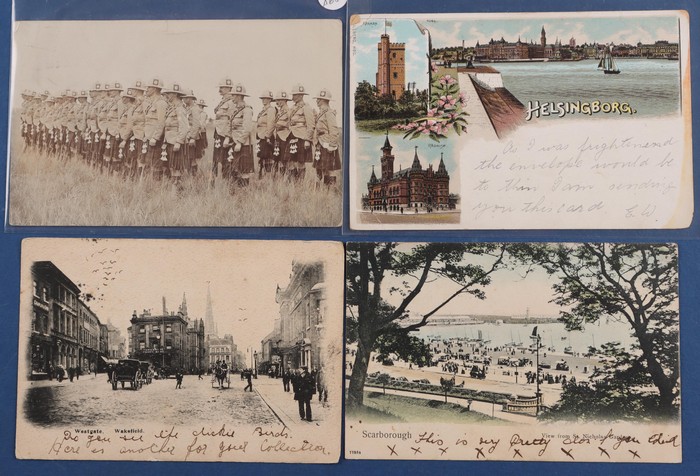 HELSINGBORG.
As I was frightened
the envelope would be
to thin I am sending
you this card E.W.
Westgate, Wakefield.
Do you see the Birds.
Here is another for your Collection.
Scarborough
View from St. Nicholas
This is very Pretty
x x x x x x x x